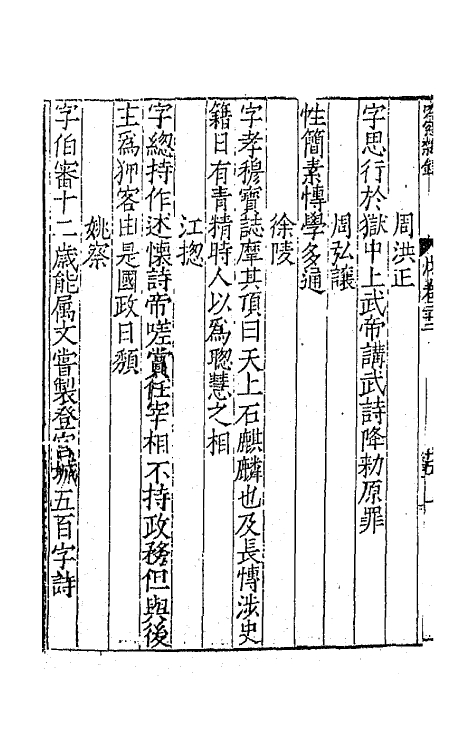 周洪正
字思行於獄中上武帝講武詩降勑原罪
周弘讓
性簡素愽學多通
徐陵
字孝穆寶誌摩其頂曰天上石麒麟也及長愽涉史
籍目有青精時人以為聰慧之相
江揔
字總持作述懷詩帝嗟賞任宰相不持政務但與後
主為狎客由是國政日頽
姚察
字伯審十二歲能属文嘗製登宮城五百字詩